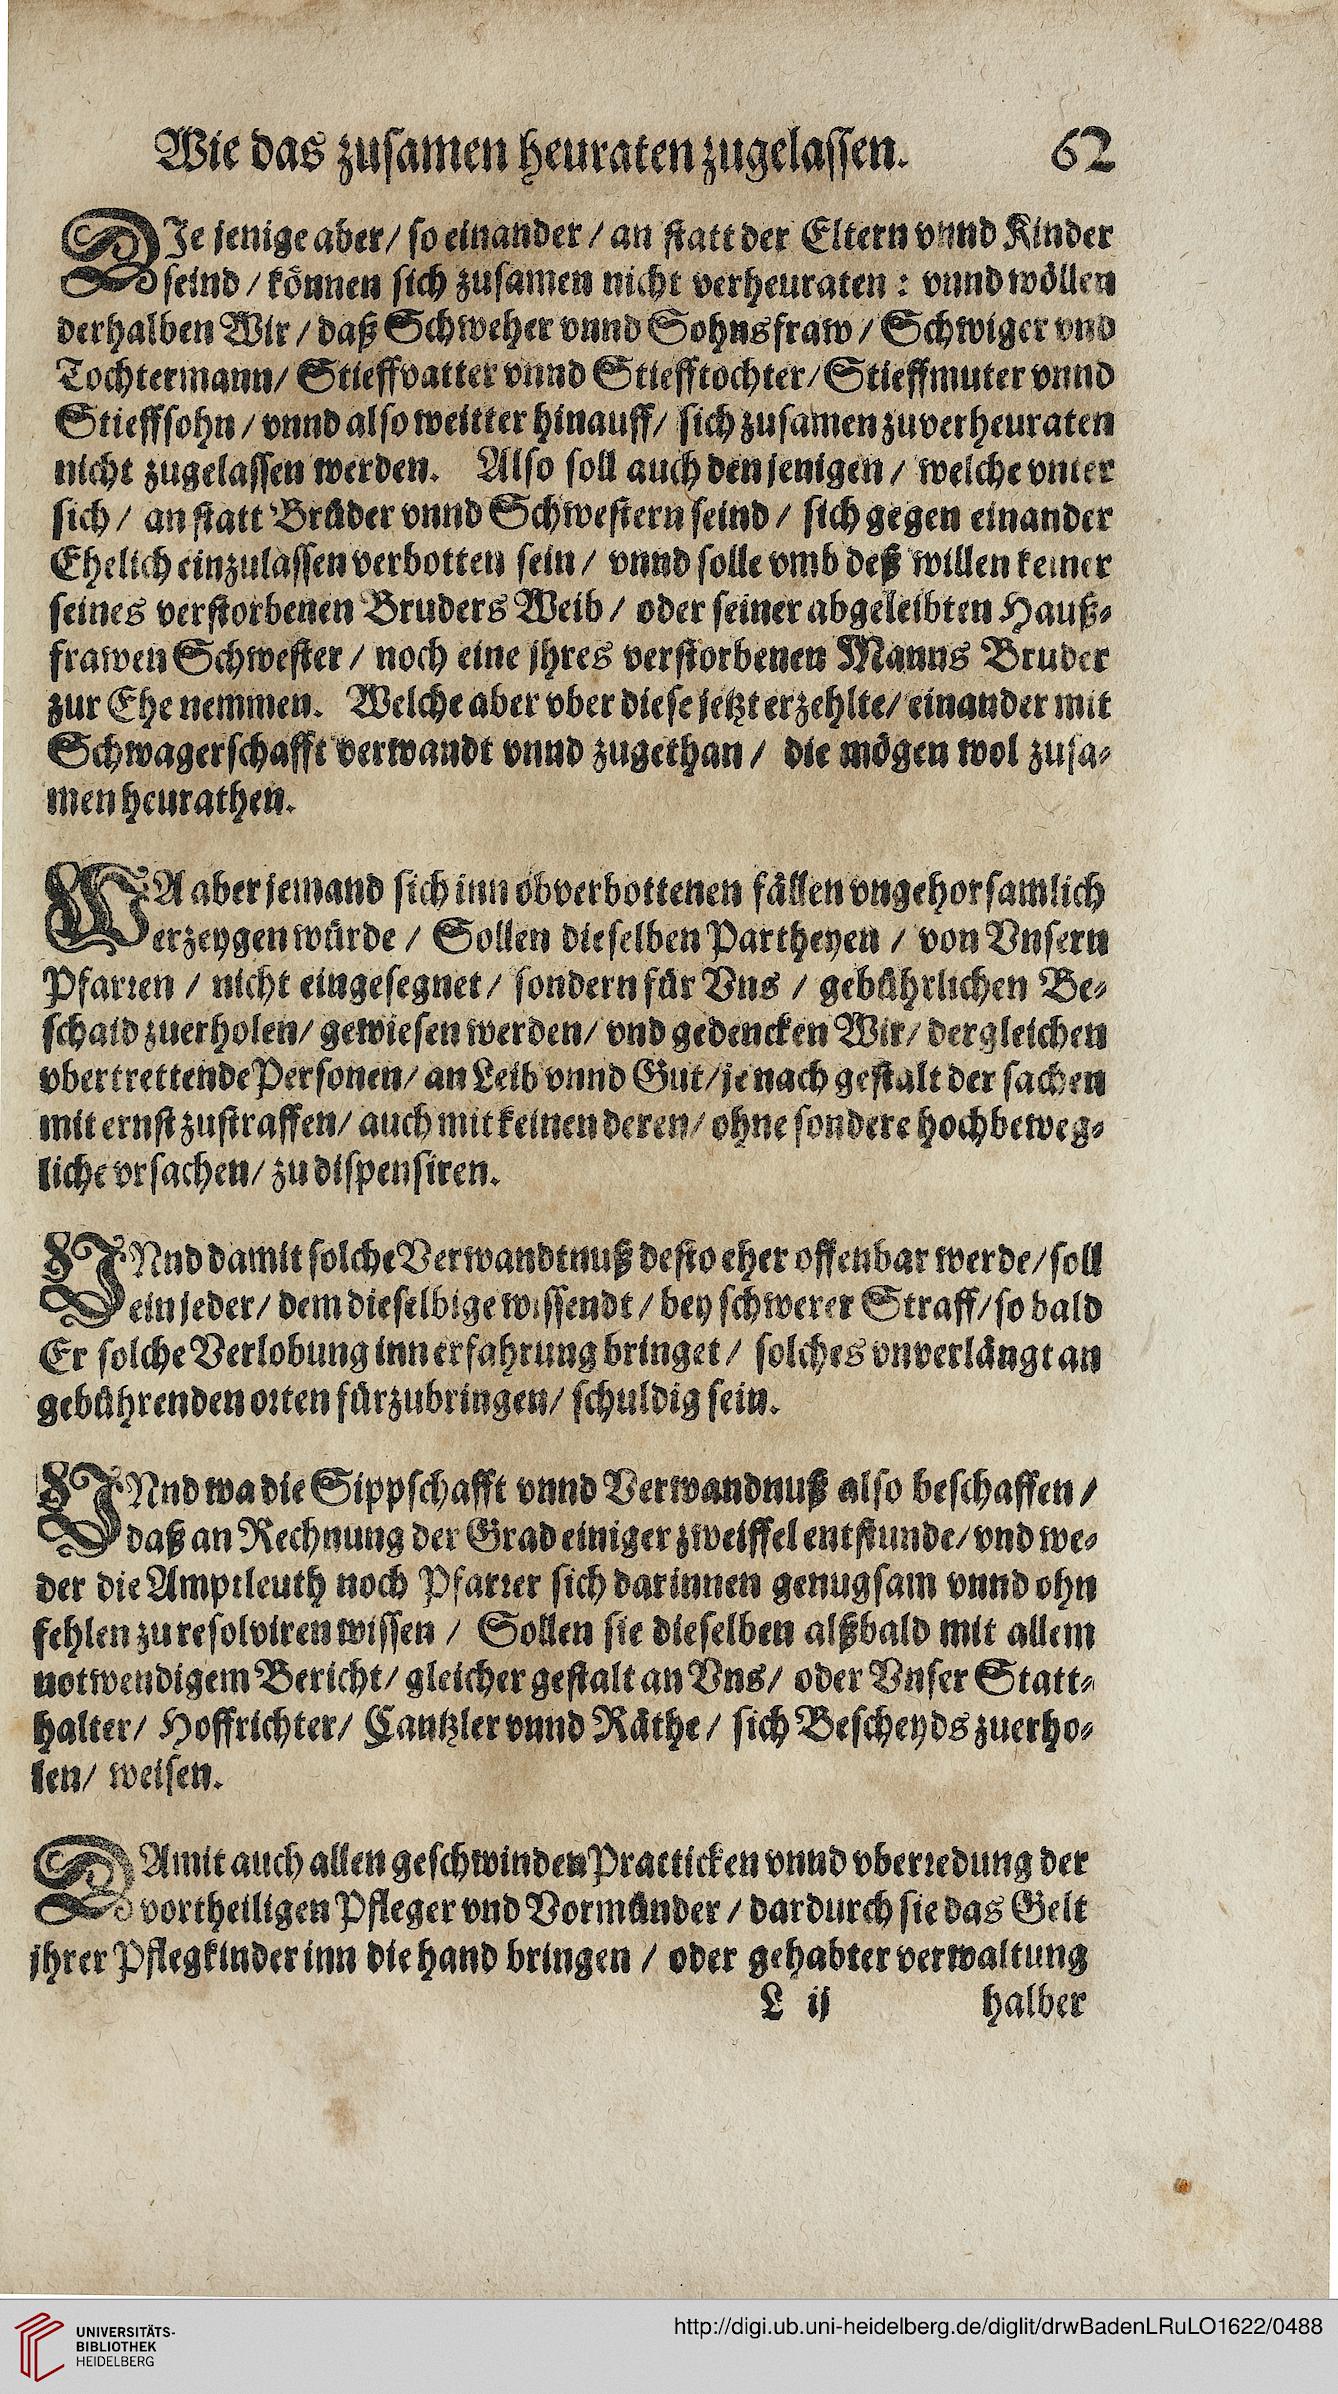 Wie das zusamen heuraten zugelassen. 62
DIe jenige aber/ so einander / an statt der Eltern vnnd Kinder
seind / können sich zusamen nicht verheuraten : vnnd wöllen
derhalben Wir / daß Schweher vnnd Sohnsfraw / Schwiger vnd
Tochtermann/ Stieffvatter vnnd Stiefftochter/ Stieffmuter vnnd
Stieffsohn / vnnd also weitter hinauff/ sich zusamen zuverheuraten
nicht zugelassen werden. Also soll auch den jenigen / welche vnter
sich / an statt Brüder vnnd Schwestern seind / sich gegen einander
Ehelich einzulassen verbotten sein / vnnd solle vmb deß willen keiner
seines verstorbenen Bruders Weib / oder seiner abgeleibten Hauß-
frawen Schwester / noch eine jhres verstorbenen Manns Bruder
zur Ehe nemmen. Welche aber vber diese jetzt erzehlte/ einander mit
Schwagerschafft verwandt vnnd zugethan / die mögen wol zusa-
men heurathen.
WA aber jemand sich inn obverbottenen fällen vngehorsamlich
erzeygen würde / Sollen dieselben Partheyen / von Vnsern
Pfarren / nicht eingesegnet / sondern für Vns / gebührlichen Be-
schaid zuerholen/ gewiesen werden/ vnd gedencken Wir/ dergleichen
vbertrettende Personen/ an Leib vnnd Gut/ je nach gestalt der sachen
mit ernst zustraffen/ auch mit keinen deren/ ohne sondere hochbeweg-
liche vrsachen/ zu dispensiren.
VNnd damit solche Verwandtnuß desto eher offenbar werde/ soll
ein jeder/ dem dieselbige wissendt / bey schwerer Straff/ so bald
Er solche Verlobung inn erfahrung bringet / solches vnverlängt an
gebührenden orten fürzubringen/ schuldig sein.
VNnd wa die Sippschafft vnnd Verwandnuß also beschaffen /
daß an Rechnung der Grad einiger zweiffel entstunde/ vnd we-
der die Amptleuth noch Pfarrer sich darinnen genugsam vnnd ohn
fehlen zu resolviren wissen / Sollen sie dieselben alßbald mit allem
notwendigem Bericht/ gleicher gestalt an Vns/ oder Vnser Statt-
halter/ Hoffrichter/ Cantzler vnnd Räthe / sich Bescheyds zuerho-
len/ weisen.
DAmit auch allen geschwinden Practicken vnnd vberredung der
vortheiligen Pfleger vnd Vormünder / dardurch sie das Gelt
jhrer Pflegkinder inn die hand bringen / oder gehabter verwaltung
L ij halber
UNIVERSITÄTS-
BIBLIOTHEK
HEIDELBERG
http://digi.ub.uni-heidelberg.de/diglit/drwBadenLRuLO1622/0488